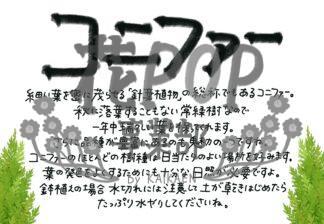 コニファー
花POP
細い葉を密に茂らせる「針葉植物」の総称でもあるコニファー。
秋に落葉することもない常緑樹なので
一年中瑞々しい葉を保ってくれます。
さらに品種が豊富にあるのも魅力の一つですね。
コニファーのほとんどの樹種は日当たりのよい場所を好みます。
葉の発色をよくするためにも十分な日照が必要ですよ。
鉢植えの場合 水切れには注意して土が乾きはじめたら
たっぷり水ヤリしてくださいね。